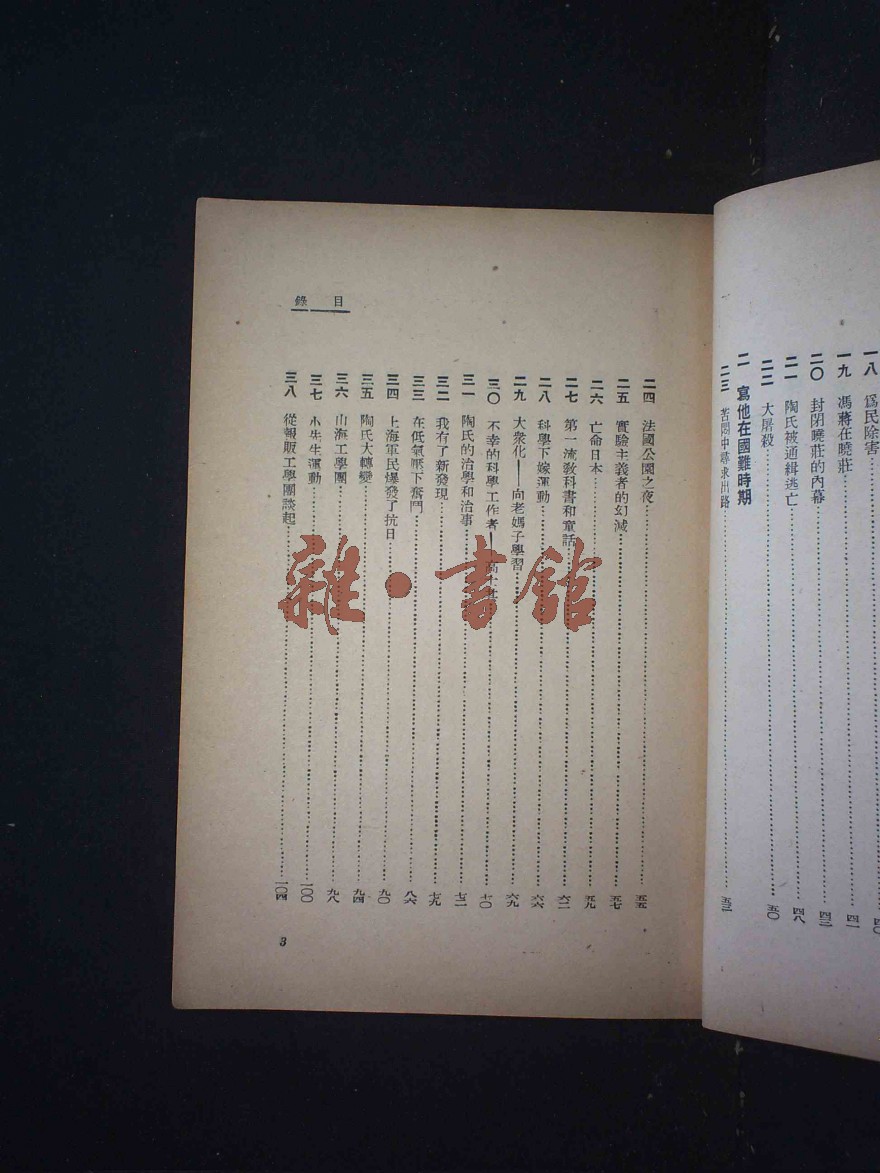 一八　爲民除害……四〇
一九　馮蔣在曉莊……四一
二〇　封閉曉莊的內幕……四三
二一　陶氏被通緝逃亡……四八
二二　大屠殺……五〇
二　寫他在國難時期
二三　苦悶中尋求出路……五三
目錄
二四　法國公園之夜……五五
二五　實驗主義者的幻滅……五七
二六　亡命日本……五九
二七　第一流教科書和童話……六二
二八　科學下嫁運動……六六
二九　大衆化——向老媽子學習……六九
三〇　不幸的科學工作者——高士其……七〇
三一　陶氏的治學和治事……七二
三二　我有了新發現……七九
三三　在低氣壓下奮鬥……八六
三四　上海軍民爆發了抗日……九〇
三五　陶氏大轉變……九四
三六　山海工學團……九八
三七　小先生運動……一〇〇
三八　從報販工學團談起……一〇四
3
雜·書館